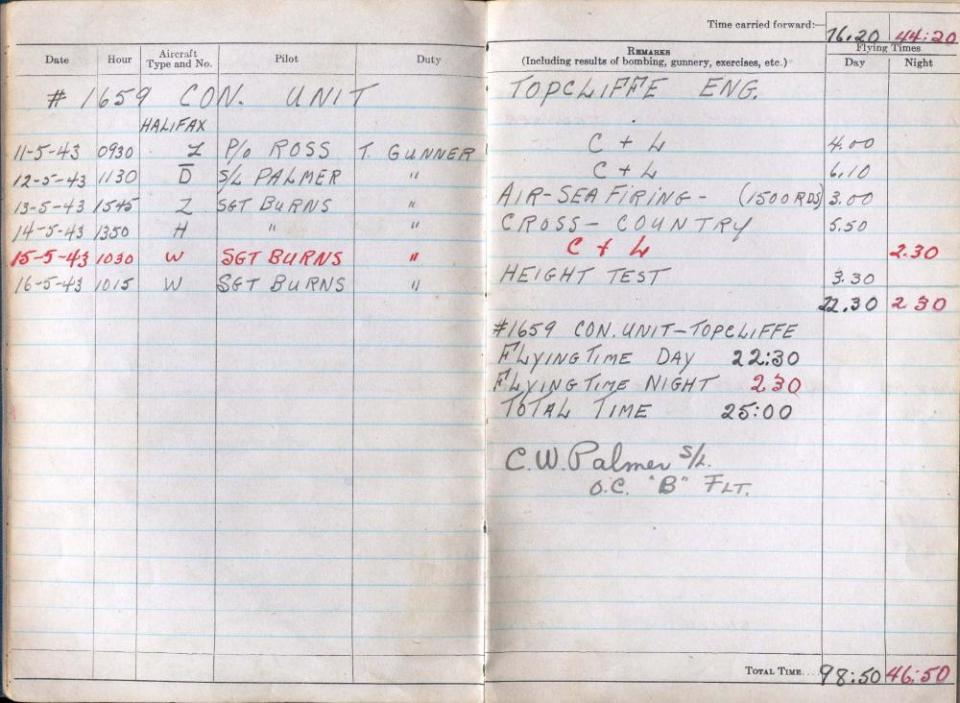 Time carried forward:— 76.20 44:20
Date Hour Aircraft Type and No. Pilot Duty REMARKS (Including results of bombing, gunnery, exercises, etc.) Flying Times Day Night
# 1659 CON. UNIT TOPCLIFFE ENG.
HALIFAX
11-5-43 0930 Z P/O ROSS T. GUNNER C + L 4.00
12-5-43 1130 D S/L PALMER " C + L 6.10
13-5-43 1545 Z SGT BURNS " AIR-SEA FIRING - (1500 RDS) 3.00
14-5-43 1350 H " " CROSS-COUNTRY 5.50
15-5-43 1030 W SGT BURNS " C + L 2.30
16-5-43 1015 W SGT BURNS " HEIGHT TEST 3.30
22.30 2 30
#1659 CON. UNIT-TOPCLIFFE
FLYING TIME DAY 22:30
FLYING TIME NIGHT 2 30
TOTAL TIME 25:00
C.W. Palmer S/L.
O.C. "B" FLT.
TOTAL TIME... 98:50 46:50